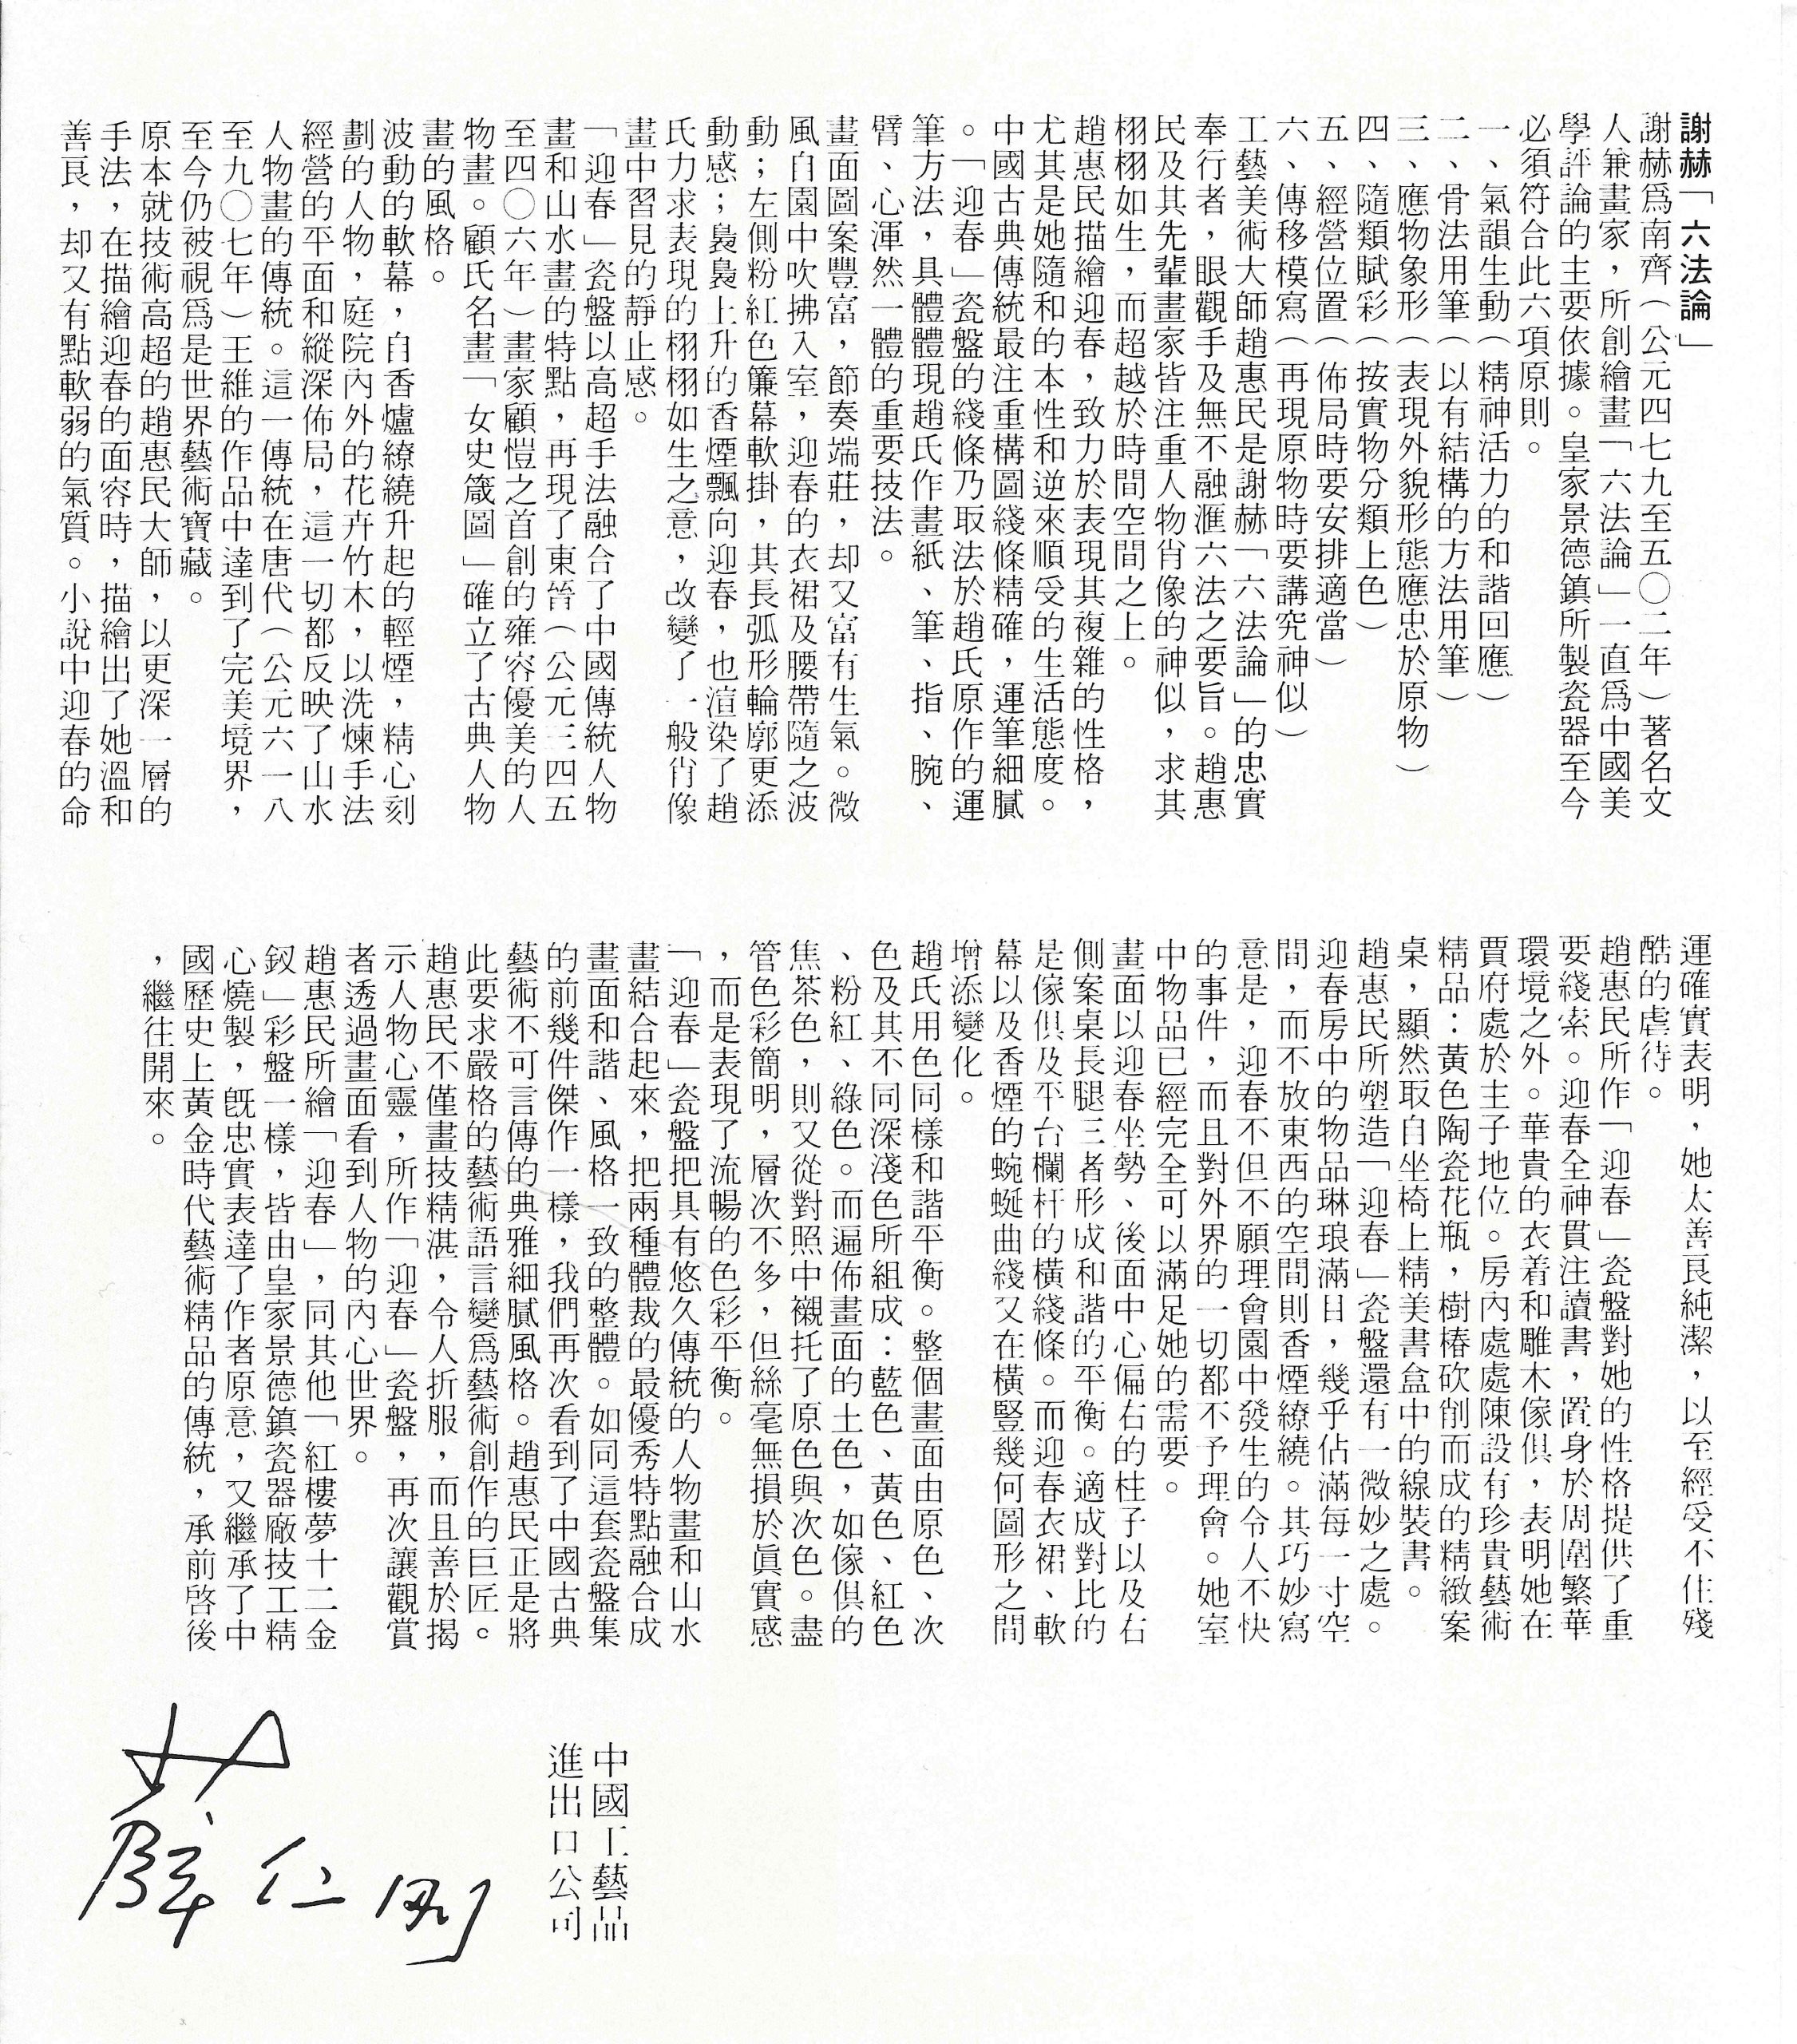 謝赫「六法論」
謝赫爲南齊（公元四七九至五〇二年）著名文
人兼畫家，所創繪畫「六法論」一直爲中國美
學評論的主要依據。皇家景德鎮所製瓷器至今
必須符合此六項原則。
一、氣韻生動（精神活力的和諧回應）
二、骨法用筆（以有結構的方法用筆）
三、應物象形（表現外貌形態應忠於原物）
四、隨類賦彩（按實物分類上色）
五、經營位置（佈局時要安排適當）
六、傳移模寫（再現原物時要講究神似）
工藝美術大師趙惠民是謝赫「六法論」的忠實
奉行者，眼觀手及無不融滙六法之要旨。趙惠
民及其先輩畫家皆注重人物肖像的神似，求其
栩栩如生，而超越於時間空間之上。
趙惠民描繪迎春，致力於表現其複雜的性格，
尤其是她隨和的本性和逆來順受的生活態度。
中國古典傳統最注重構圖綫條精確，運筆細膩
。「迎春」瓷盤的綫條乃取法於趙氏原作的運
筆方法，具體體現趙氏作畫紙、筆、指、腕、
臂、心渾然一體的重要技法。
畫面圖案豐富，節奏端莊，却又富有生氣。微
風自園中吹拂入室，迎春的衣裙及腰帶隨之波
動；左側粉紅色簾幕軟掛，其長弧形輪廓更添
動感；裊裊上升的香煙飄向迎春，也渲染了趙
氏力求表現的栩栩如生之意，改變了一般肖像
畫中習見的靜止感。
「迎春」瓷盤以高超手法融合了中國傳統人物
畫和山水畫的特點，再現了東晉（公元三四五
至四〇六年）畫家顧愷之首創的雍容優美的人
物畫。顧氏名畫「女史箴圖」確立了古典人物
畫的風格。
波動的軟幕，自香爐繚繞升起的輕煙，精心刻
劃的人物，庭院內外的花卉竹木，以洗煉手法
經營的平面和縱深佈局，這一切都反映了山水
人物畫的傳統。這一傳統在唐代（公元六一八
至九〇七年）王維的作品中達到了完美境界，
至今仍被視爲是世界藝術寶藏。
原本就技術高超的趙惠民大師，以更深一層的
手法，在描繪迎春的面容時，描繪出了她溫和
善良，却又有點軟弱的氣質。小說中迎春的命
運確實表明，她太善良純潔，以至經受不住殘
酷的虐待。
趙惠民所作「迎春」瓷盤對她的性格提供了重
要綫索。迎春全神貫注讀書，置身於周圍繁華
環境之外。華貴的衣着和雕木傢俱，表明她在
賈府處於主子地位。房內處處陳設有珍貴藝術
精品：黃色陶瓷花瓶，樹樁砍削而成的精緻案
桌，顯然取自坐椅上精美書盒中的線裝書。
趙惠民所塑造「迎春」瓷盤還有一微妙之處。
迎春房中的物品琳琅滿目，幾乎佔滿每一寸空
間，而不放東西的空間則香煙繚繞。其巧妙寫
意是，迎春不但不願理會園中發生的令人不快
的事件，而且對外界的一切都不予理會。她室
中物品已經完全可以滿足她的需要。
畫面以迎春坐勢、後面中心偏右的柱子以及右
側案桌長腿三者形成和諧的平衡。適成對比的
是傢俱及平台欄杆的橫綫條。而迎春衣裙、軟
幕以及香煙的蜿蜒曲綫又在橫豎幾何圖形之間
增添變化。
趙氏用色同樣和諧平衡。整個畫面由原色、次
色及其不同深淺色所組成：藍色、黃色、紅色
、粉紅、綠色。而遍佈畫面的土色，如傢俱的
焦茶色，則又從對照中襯托了原色與次色。盡
管色彩簡明，層次不多，但絲毫無損於眞實感
，而是表現了流暢的色彩平衡。
「迎春」瓷盤把具有悠久傳統的人物畫和山水
畫結合起來，把兩種體裁的最優秀特點融合成
畫面和諧、風格一致的整體。如同這套瓷盤集
的前幾件傑作一樣，我們再次看到了中國古典
藝術不可言傳的典雅細膩風格。趙惠民正是將
此要求嚴格的藝術語言變爲藝術創作的巨匠。
趙惠民不僅畫技精湛，令人折服，而且善於揭
示人物心靈，所作「迎春」瓷盤，再次讓觀賞
者透過畫面看到人物的內心世界。
趙惠民所繪「迎春」，同其他「紅樓夢十二金
釵」彩盤一樣，皆由皇家景德鎮瓷器廠技工精
心燒製，旣忠實表達了作者原意，又繼承了中
國歷史上黃金時代藝術精品的傳統，承前啓後
，繼往開來。
中國工藝品
進出口公司
薛仁刚